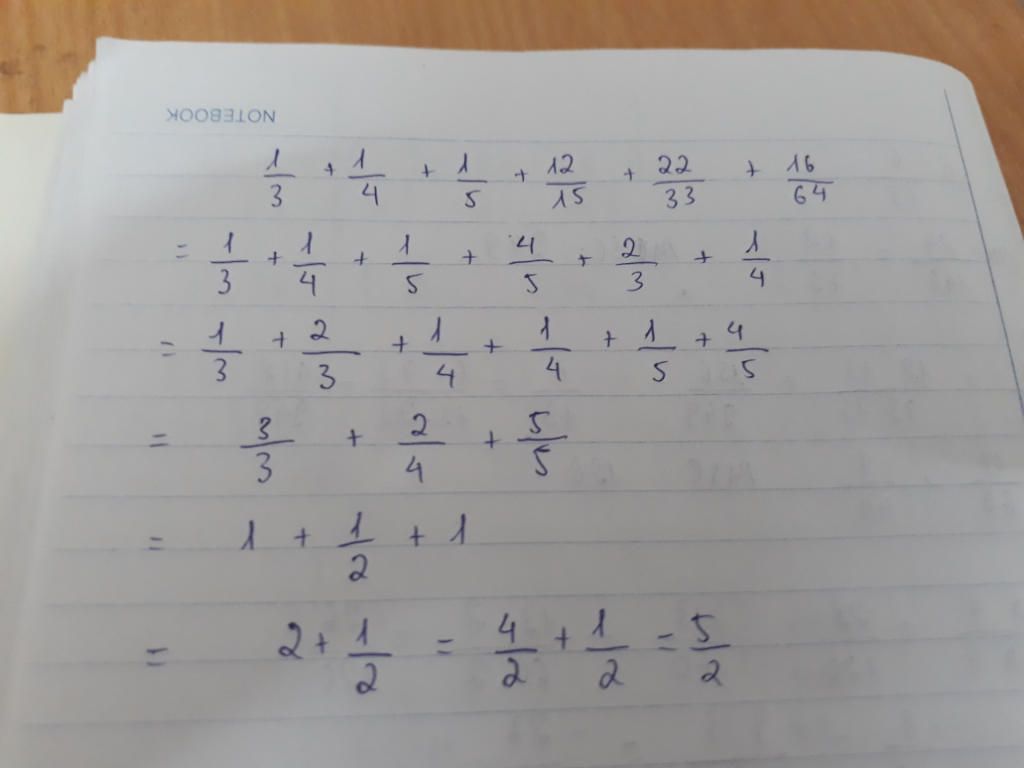 NOTEBOOK
1/3 + 1/4 + 1/5 + 12/15 + 22/33 + 16/64
= 1/3 + 1/4 + 1/5 + 4/5 + 2/3 + 1/4
= 1/3 + 2/3 + 1/4 + 1/4 + 1/5 + 4/5
= 3/3 + 2/4 + 5/5
= 1 + 1/2 + 1
= 2 + 1/2 = 4/2 + 1/2 = 5/2